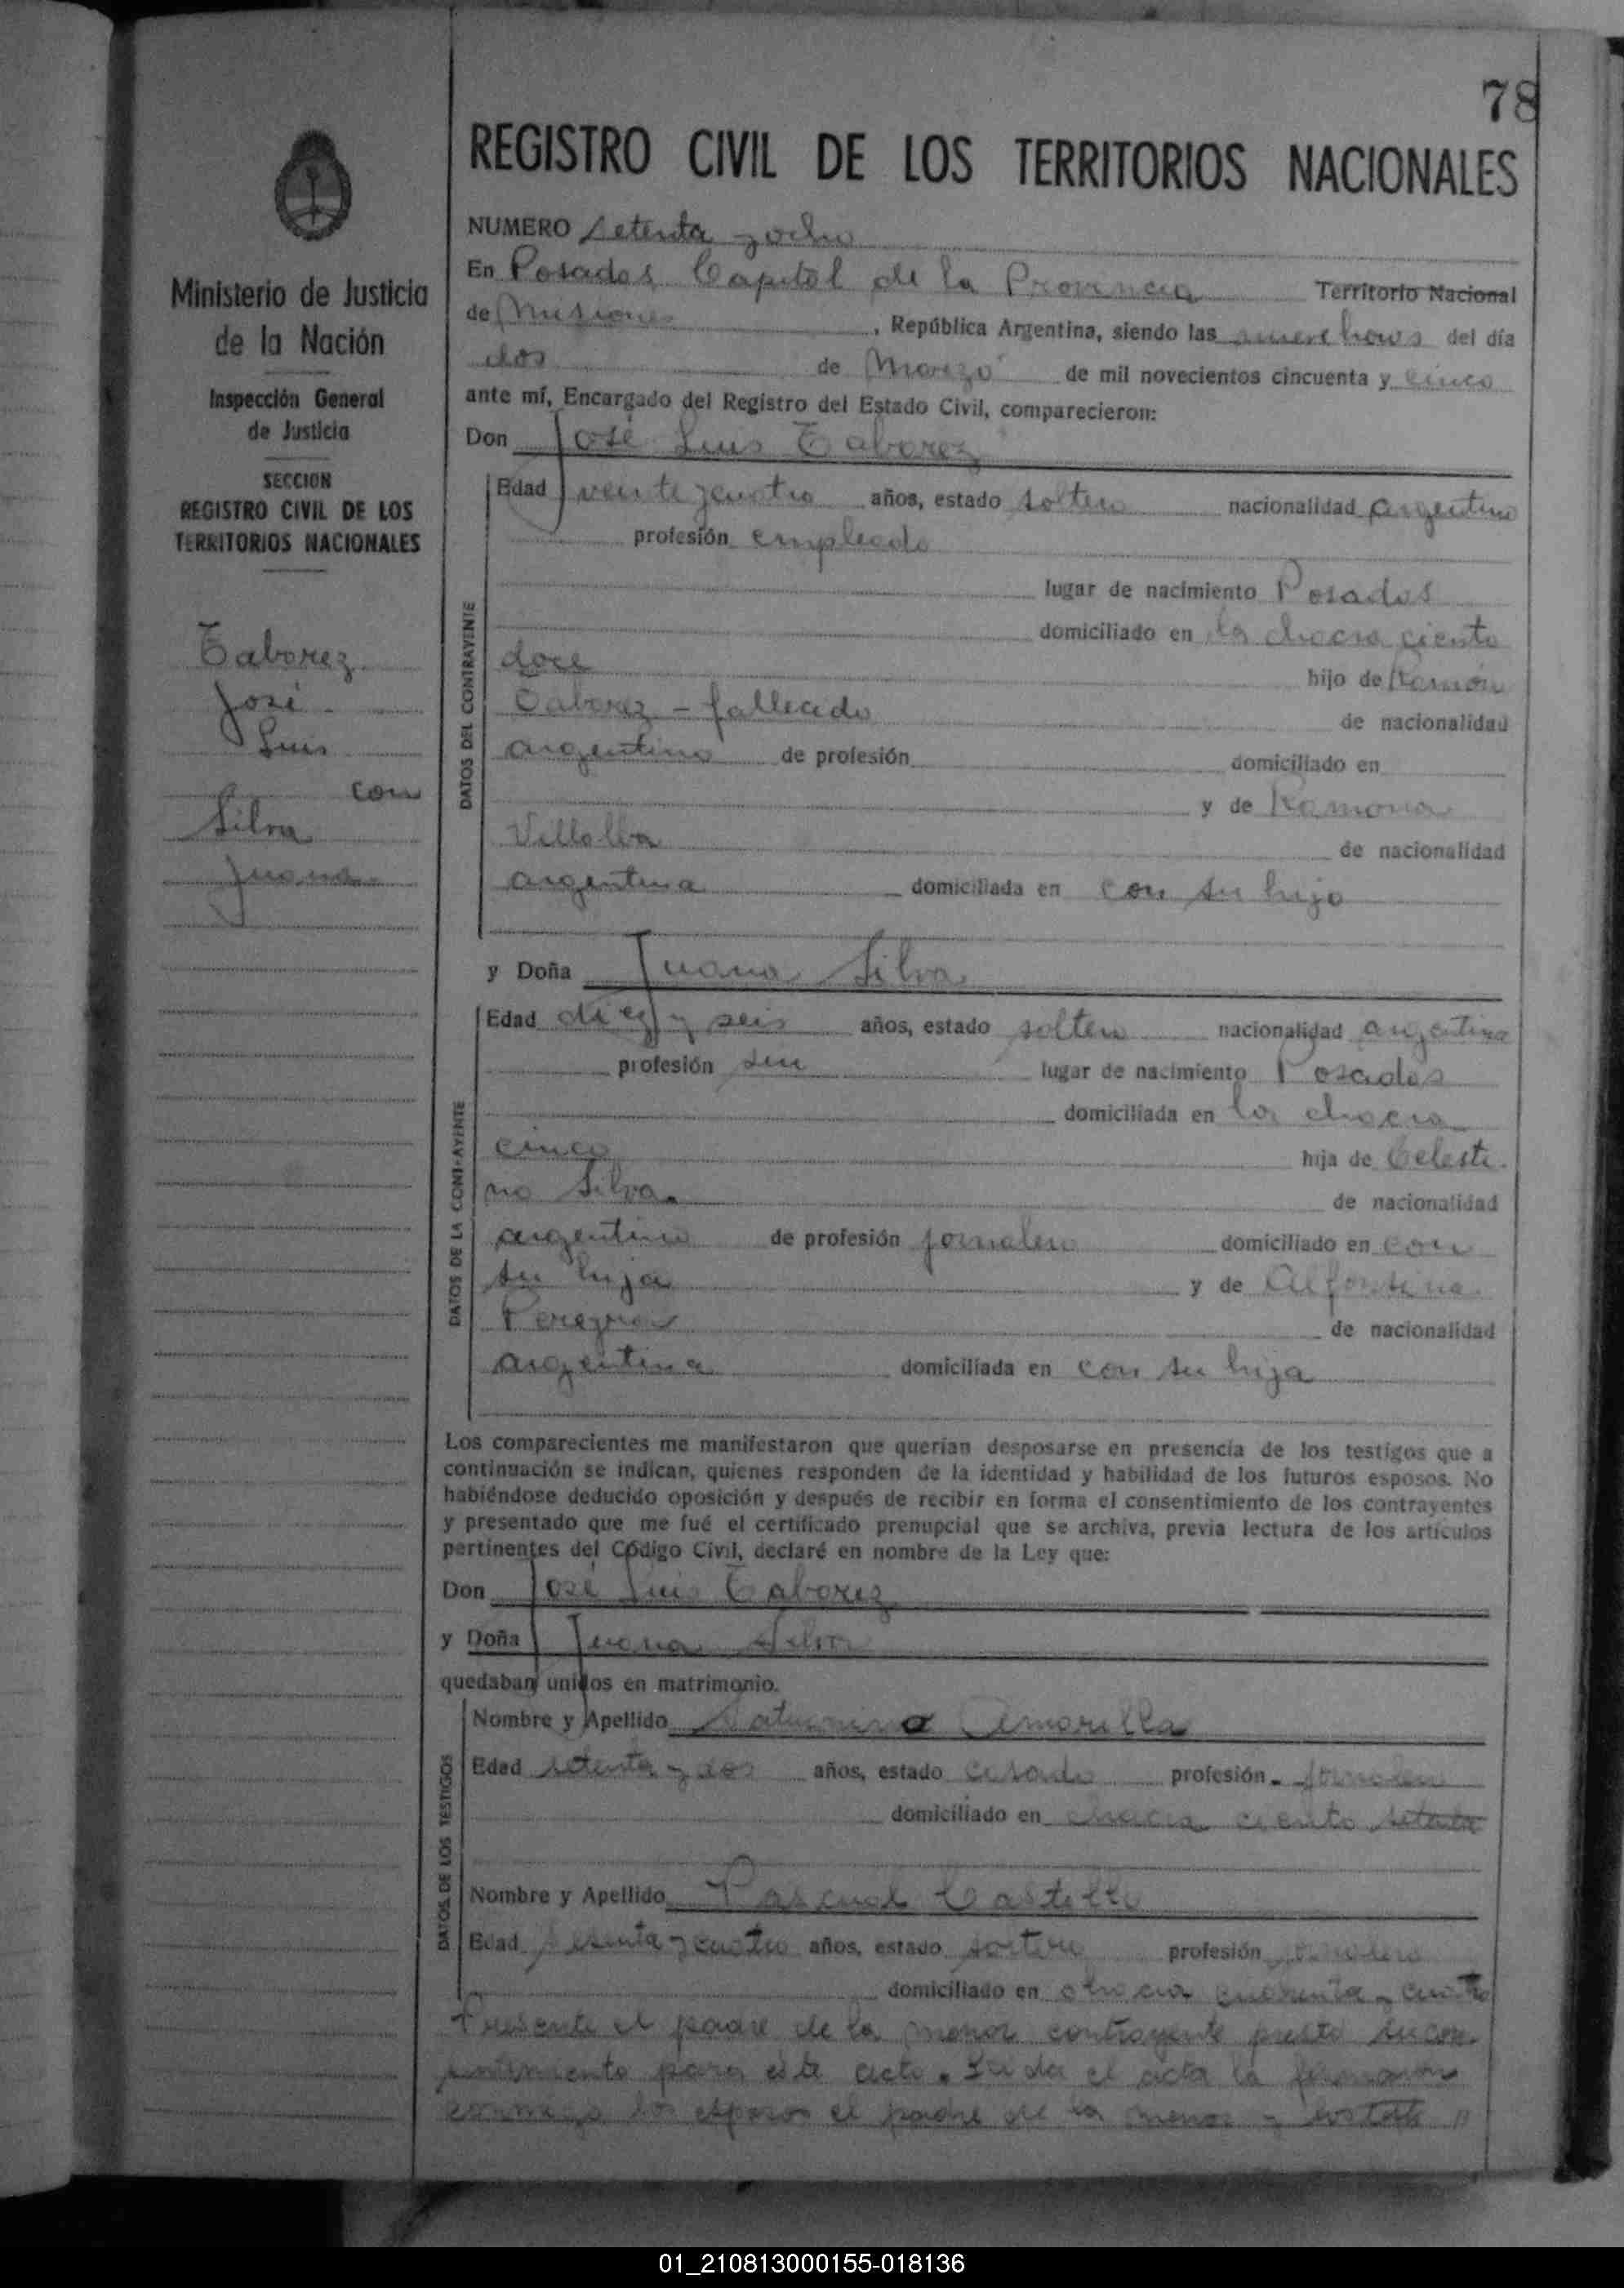 78
Ministerio de Justicia
de la Nación
Inspección General
de Justicia
SECCION
REGISTRO CIVIL DE LOS
TERRITORIOS NACIONALES
Taborez
José
Luis
con
Silva
Juana
REGISTRO CIVIL DE LOS TERRITORIOS NACIONALES
NUMERO setenta y ocho
En Posadas Capital de la Provincia Territorio Nacional
de Misiones, República Argentina, siendo las nueve horas del día
dos de Marzo de mil novecientos cincuenta y cinco
ante mí, Encargado del Registro del Estado Civil, comparecieron:
Don José Luis Taborez
DATOS DEL CONTRAYENTE
Edad veinte y cuatro años, estado soltero nacionalidad argentino
profesión empleado
lugar de nacimiento Posadas
domiciliado en la chacra ciento
doce hijo de Ramón
Taborez - fallecido de nacionalidad
argentino de profesión domiciliado en
y de Ramona
Villalba de nacionalidad
argentina domiciliada en con su hijo
y Doña Juana Silva
DATOS DE LA CONTRAYENTE
Edad diez y seis años, estado soltera nacionalidad argentina
profesión sin lugar de nacimiento Posadas
domiciliada en la chacra
cinco hija de Celesti-
no Silva. de nacionalidad
argentino de profesión jornalero domiciliado en con
su hija y de Alfonsina
Pereyra de nacionalidad
argentina domiciliada en con su hija
Los comparecientes me manifestaron que querían desposarse en presencia de los testigos que a
continuación se indican, quienes responden de la identidad y habilidad de los futuros esposos. No
habiéndose deducido oposición y después de recibir en forma el consentimiento de los contrayentes
y presentado que me fué el certificado prenupcial que se archiva, previa lectura de los artículos
pertinentes del Código Civil, declaré en nombre de la Ley que:
Don José Luis Taborez
y Doña Juana Silva
quedaban unidos en matrimonio.
DATOS DE LOS TESTIGOS
Nombre y Apellido Saturnino Amarilla
Edad setenta y dos años, estado casado profesión jornalero
domiciliado en chacra ciento setenta
Nombre y Apellido Pascual Castillo
Edad sesenta y cuatro años, estado soltero profesión jornalero
domiciliado en chacra cuarenta y cuatro
Presente el padre de la menor contrayente prestó su con-
sentimiento para este acto. Leída el acta la firmaron
conmigo los esposos el padre de la menor y
01_210813000155-018136